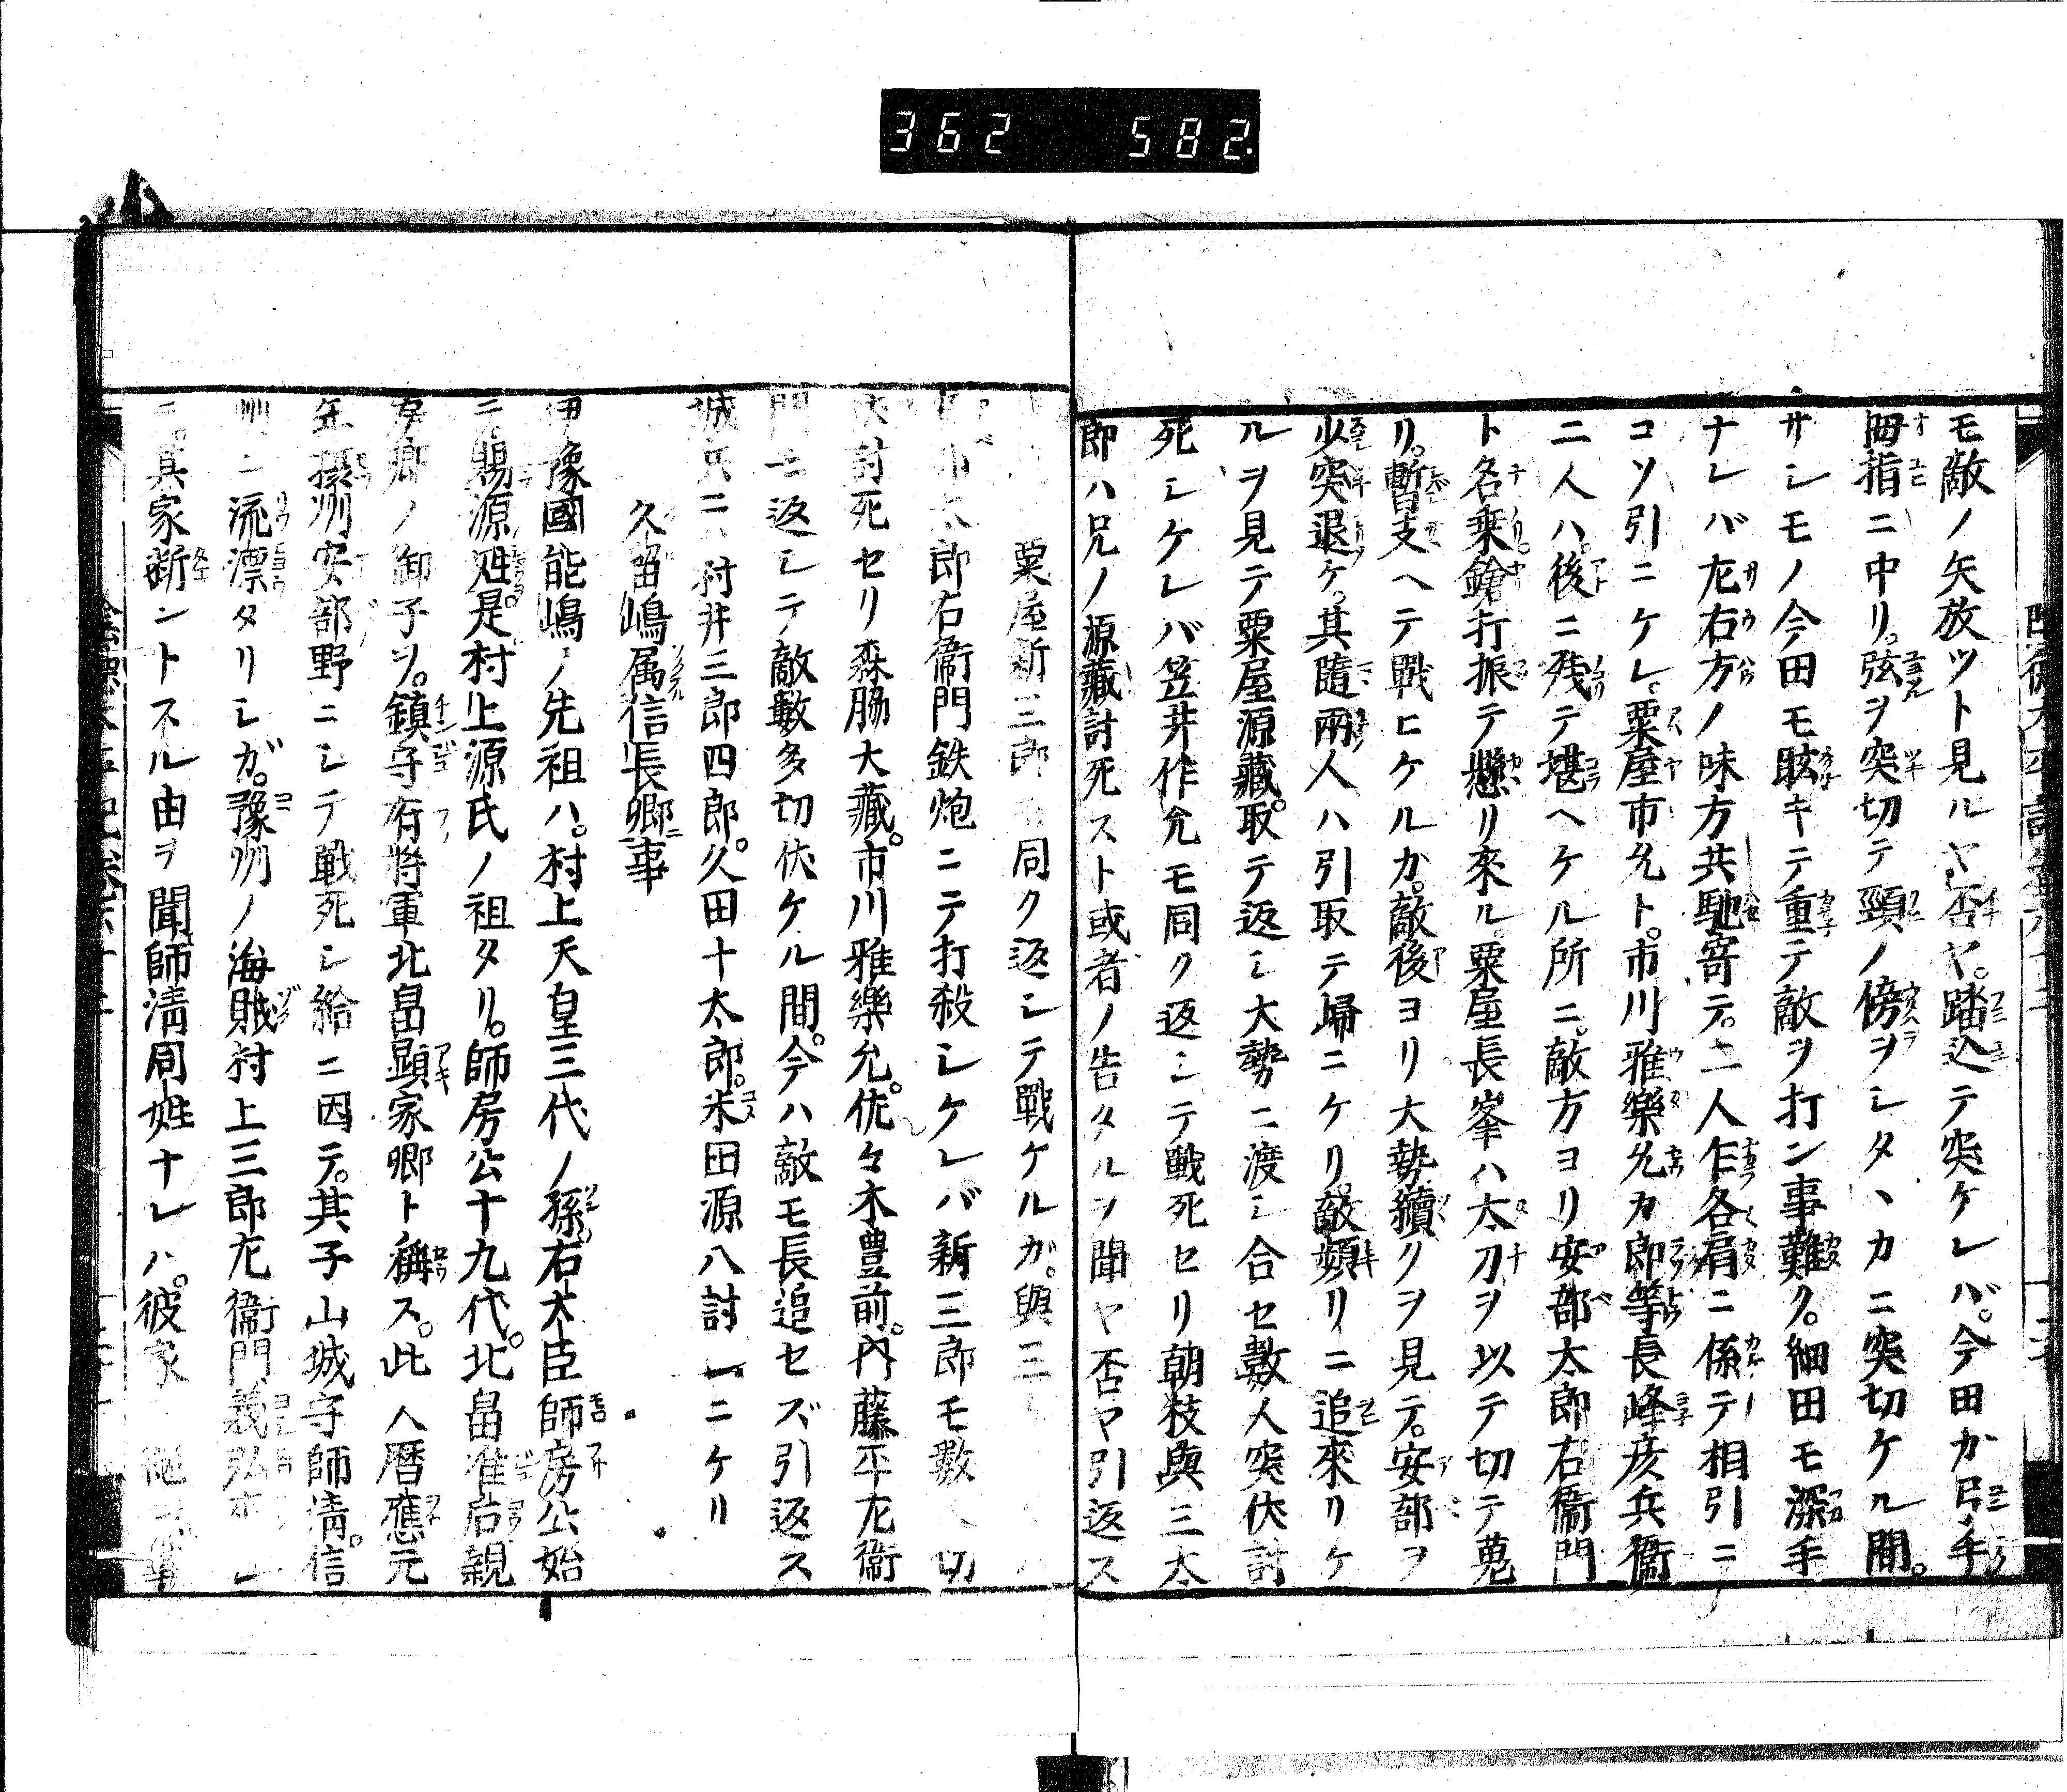 362 582.
モ敵ノ矢放ツト見ルヤ否ヤ。踏込テ突ケレバ。今田カ弓手
拇指ニ中リ。弦ヲ突切テ頸ノ傍ヲシタヽカニ突切ケル間。
サシモノ今田モ眩キテ重テ敵ヲ打ン事難ク。細田モ深手
ナレバ左右方ノ味方共馳寄テ。二人乍各肩ニ係テ相引ニ
コソ引ニケレ。粟屋市允ト。市川雅樂允カ郎等長峰彦兵衞
二人ハ。後ニ残テ堪ヘケル所ニ。敵方ヨリ安部太郎右衞門
ト各乗鎗打振テ懸リ來ル。粟屋長峯ハ太刀ヲ以テ切テ蒐
リ。暫支ヘテ戰ヒケルカ。敵後ヨリ大勢續クヲ見テ。安部ヲ
少突退ケ。其隨兩人ハ引取テ歸ニケリ。敵頻リニ追來リケ
ルヲ見テ粟屋源藏。取テ返シ大勢ニ渡シ合セ數人突伏討
死シケレバ笠井作允モ同ク返シテ戰死セリ朝枝與三太
郎ハ兄ノ源藏討死スト或者ノ告タルヲ聞ヤ否ヤ引返ス
粟屋新三郎 同ク返シテ戰ケルガ。與三
太郎右衞門鉄炮ニテ打殺シケレバ新三郎モ數 切
伏討死セリ森脇大藏。市川雅樂允。佐々木豊前。内藤平左衞
門モ返シテ敵數多切伏ケル間。今ハ敵モ長追セズ引返ス
城兵ニハ村井三郎四郎。久田十太郎。米田源八討レニケリ
久留嶋属信長卿事
伊豫國能嶋ノ先祖ハ。村上天皇三代ノ孫。右大臣師房公始
ニ賜源姓。是村上源氏ノ祖タリ。師房公十九代。北畠准后親
房卿ノ御子ヲ。鎮守府將軍北畠顕家卿ト稱ス。此人暦應元
年攝州安部野ニシテ戰死シ給ニ因テ。其子山城守師清。信
州ニ流漂タリシガ。豫州ノ海賊村上三郎左衞門義弘
ニ。其家断ントスル由ヲ聞師清同姓ナレハ。彼家 継